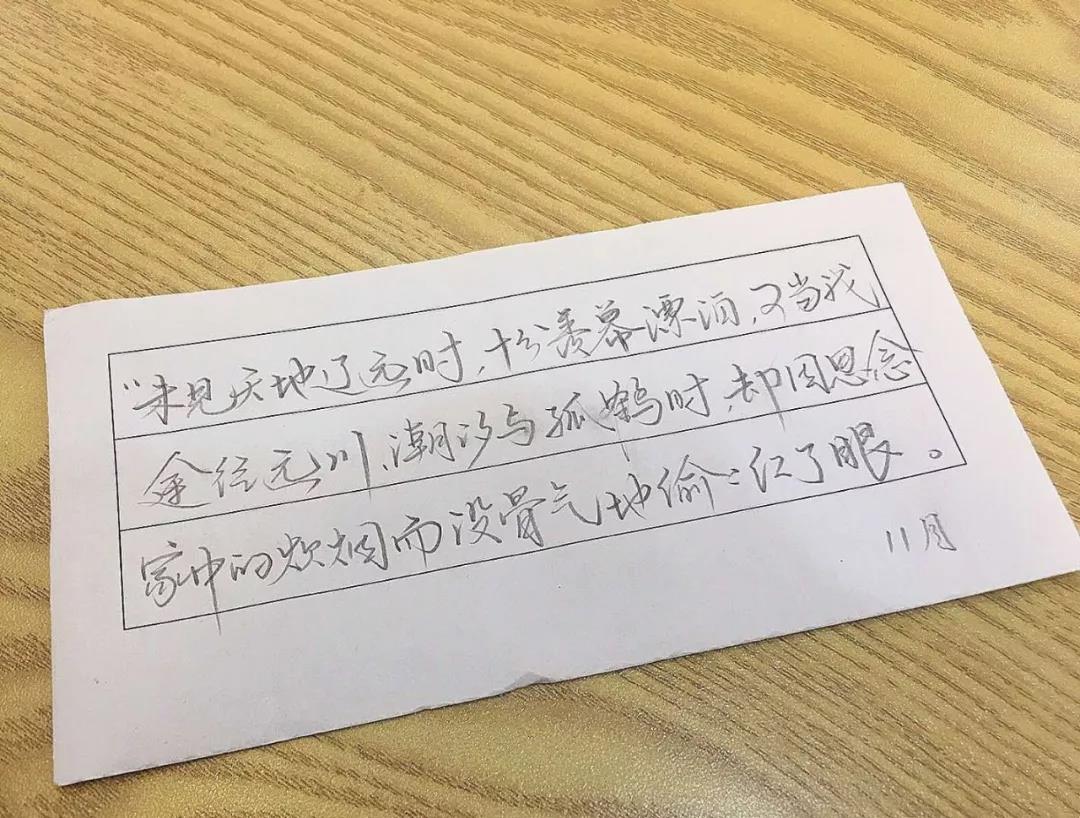 “未见天地辽远时，十分羡慕漂泊，又当我
途经远川、潮汐与孤鹤时，却因思念
家中的炊烟而没骨气地偷〻红了眼。
11月